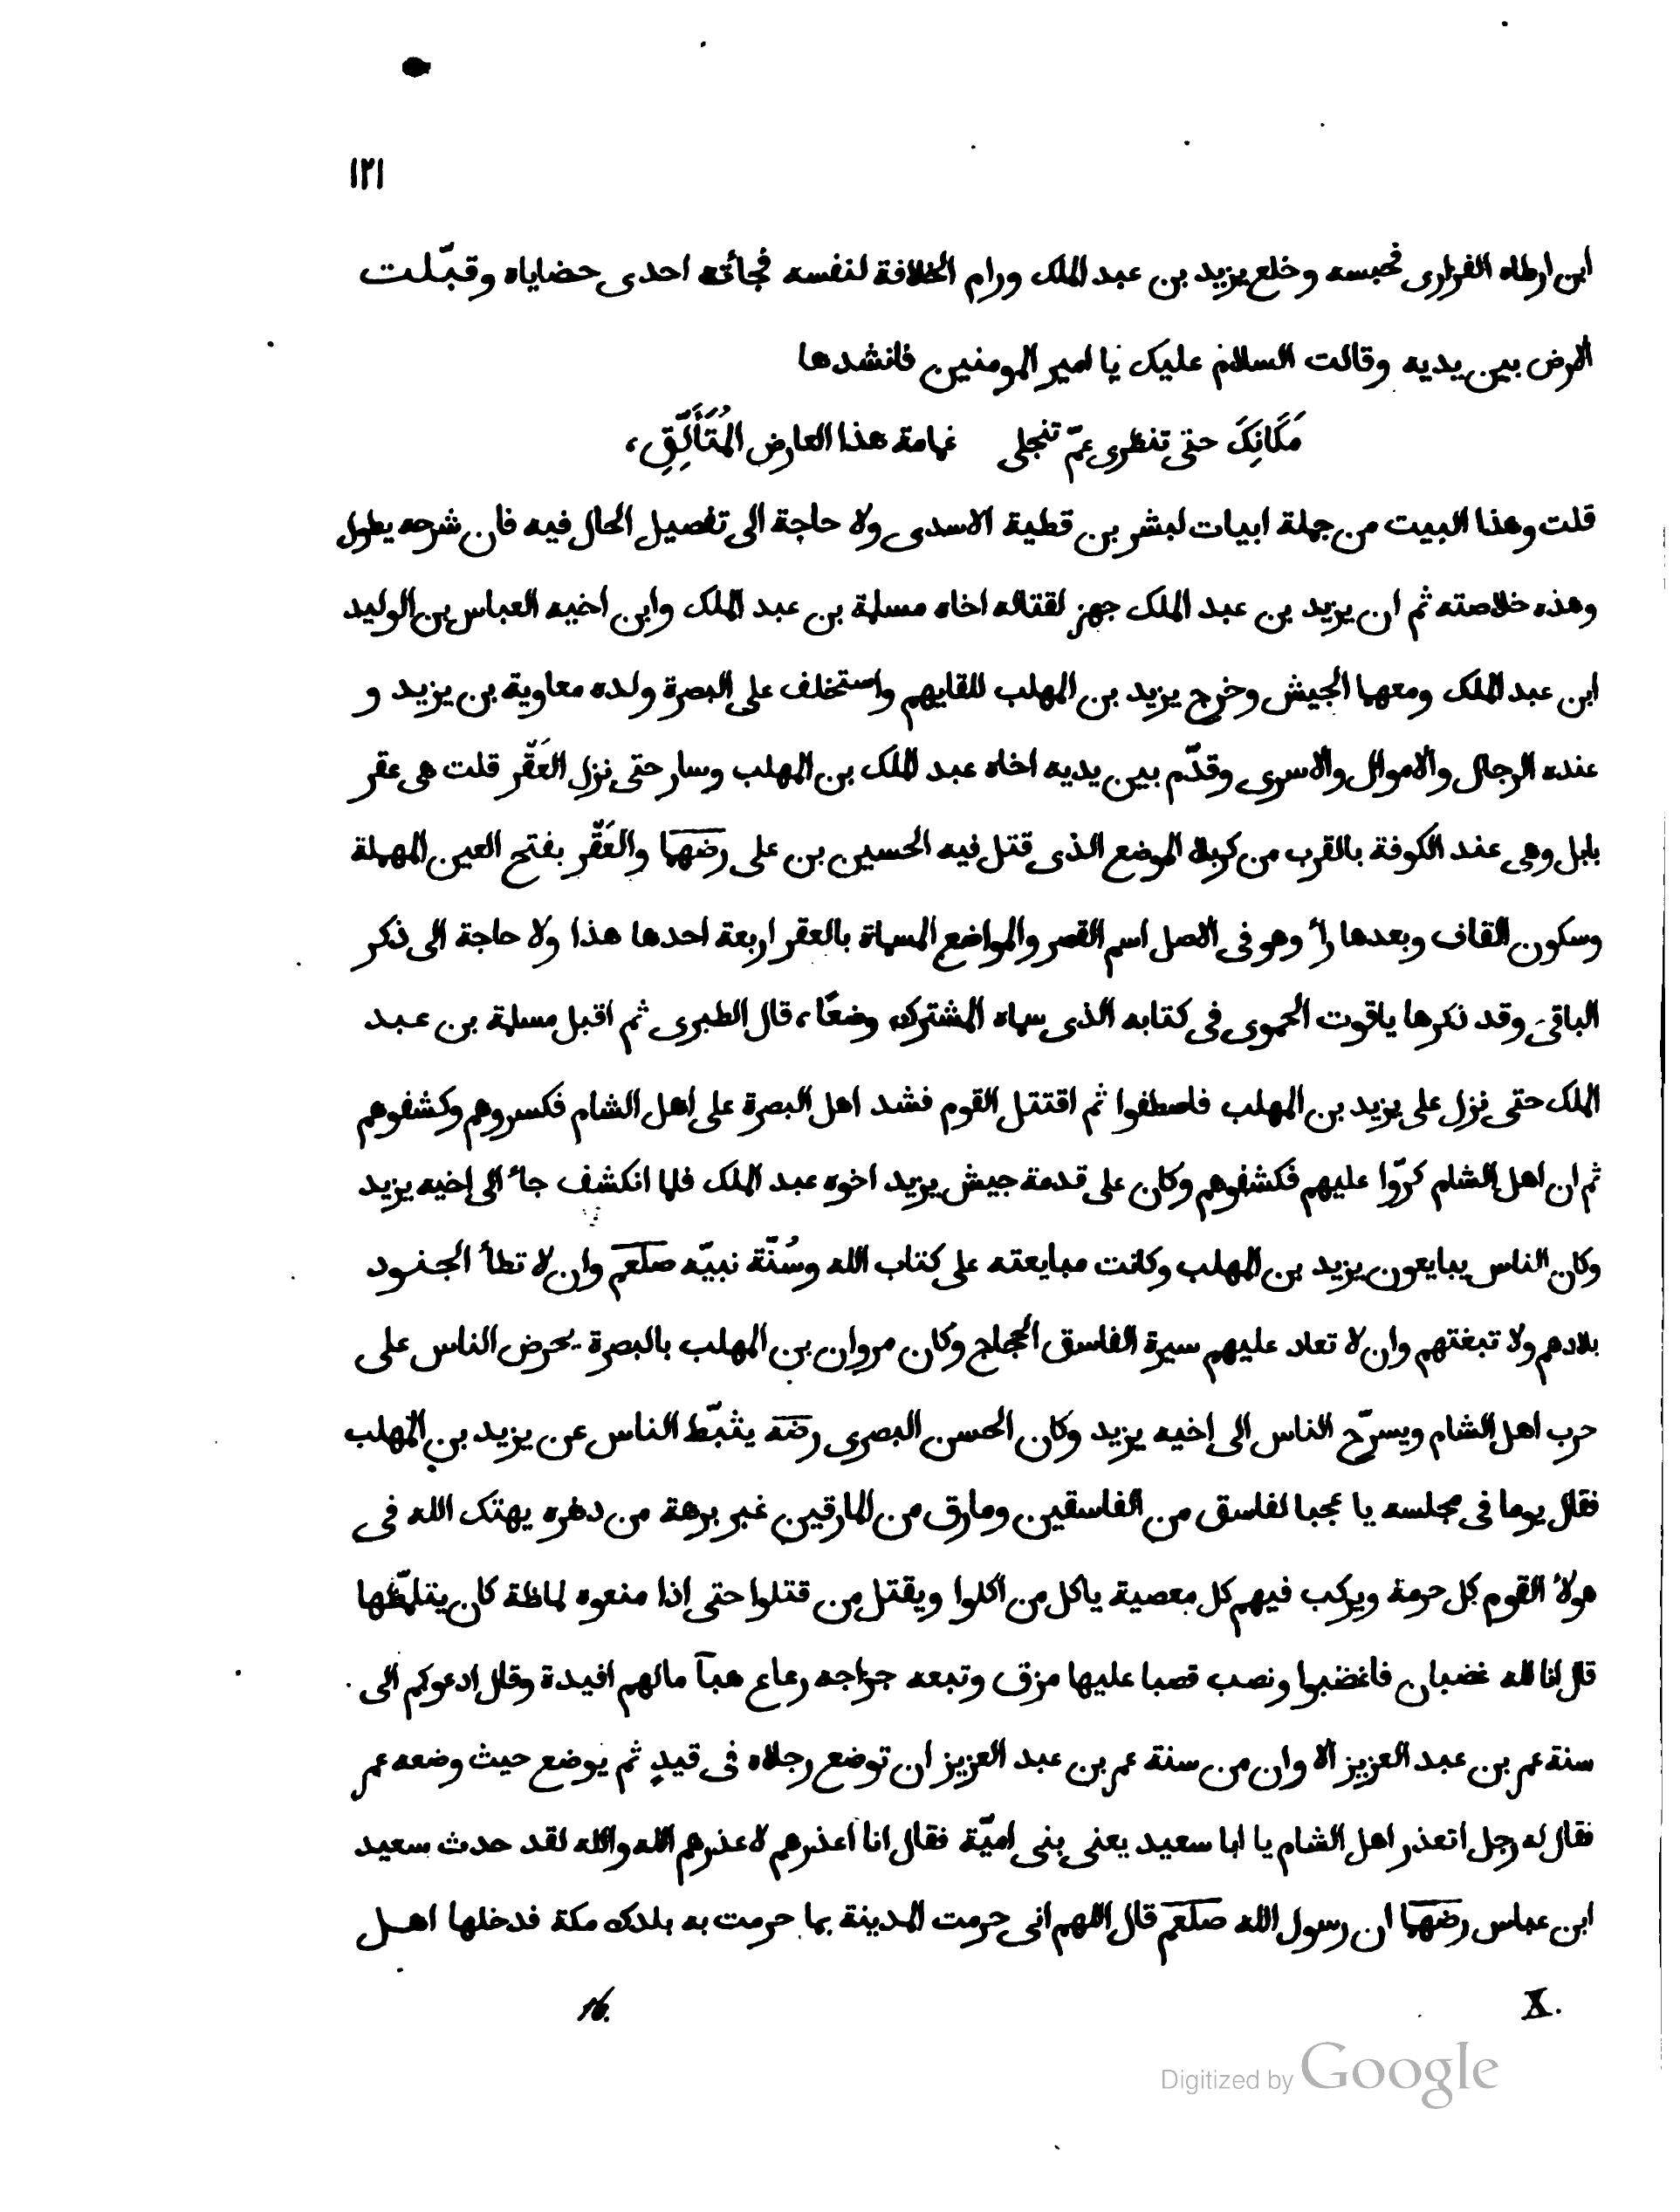 ١٢١
ابن ارطاه الفزارى فحبسه وخلع يزيد بن عبد الملك ورام الخلافة لنفسه فجائته احدى حضاياه وقبّلت
الارض بين يديه وقالت السلام عليك يا امير المومنين فانشدها
مَكَانِكَ حتى تنظرى عمّ تنجلى غمامة هذا العارض المُتَأَلِّقِ،
قلت وهذا البيت من جملة ابيات لبشر بن قطية الاسدى ولا حاجة الى تفصيل الحال فيه فان شرحه يطول
وهذه خلاصته ثم ان يزيد بن عبد الملك جهز لقتاله اخاه مسلمة بن عبد الملك وابن اخيه العباس بن الوليد
ابن عبد الملك ومعهما الجيش وخرج يزيد بن المهلب للقايهم واستخلف على البصرة ولده معاوية بن يزيد و
عنده الرجال والاموال والاسرى وقدّم بين يديه اخاه عبد الملك بن المهلب وسار حتى نزل العَقّر قلت هى عقر
بابل وهى عند الكوفة بالقرب من كربلا الموضع الذى قتل فيه الحسين بن على رضهما والعَقّر بفتح العين المهملة
وسكون القاف وبعدها رأ وهو فى الاصل اسم القصر والمواضع المسماة بالعقر اربعة احدها هذا ولا حاجة الى ذكر
الباقى وقد ذكرها ياقوت الحموى فى كتابه الذى سماه المشترك وضعًا، قال الطبرى ثم اقبل مسلمة بن عبد
الملك حتى نزل على يزيد بن المهلب فاصطفوا ثم اقتتل القوم فشد اهل البصرة على اهل الشام فكسروهم وكشفوهم
ثم ان اهل الشام كرّوا عليهم فكشفوهم وكان على قدمة جيش يزيد اخوه عبد الملك فلما انكشف جأ الى اخيه يزيد
وكان الناس يبايعون يزيد بن المهلب وكانت مبايعته على كتاب الله وسُنّة نبيّه صلعم وان لا تطأ الجنود
بلادهم ولا تبغتهم وان لا تعاد عليهم سيرة الفاسق الحجاج وكان مروان بن المهلب بالبصرة يحرض الناس على
حرب اهل الشام ويسرّح الناس الى اخيه يزيد وكان الحسن البصرى رضه يثبّط الناس عن يزيد بن المهلب
فقال يوما فى مجلسه يا عجبا لفاسق من الفاسقين ومارق من المارقين غبر برهة من دهره يهتك الله فى
هولأ القوم كل حرمة ويركب فيهم كل معصية ياكل من اكلوا ويقتل من قتلوا حتى اذا منعوه لماظة كان يتلمّظها
قال انا لله غضبان فاغضبوا ونصب قصبا عليها مزق وتبعه رعاع هبآ مالهم افيدة وقال ادعوكم الى
سنة عمر بن عبد العزيز الا وان من سنة عمر بن عبد العزيز ان توضع رجلاه فى قيدٍ ثم يوضع حيث وضعه عمر
فقال له رجل اتعذر اهل الشام يا ابا سعيد يعنى بنى اميّة فقال انا اعذرهم لا عذرهم الله والله لقد حدث سعيد
ابن عباس رضهما ان رسول الله صلعم قال اللهم انى حرمت المدينة بما حرمت به بلدك مكة فدخلها اهل
X. 16.
Digitized by Google